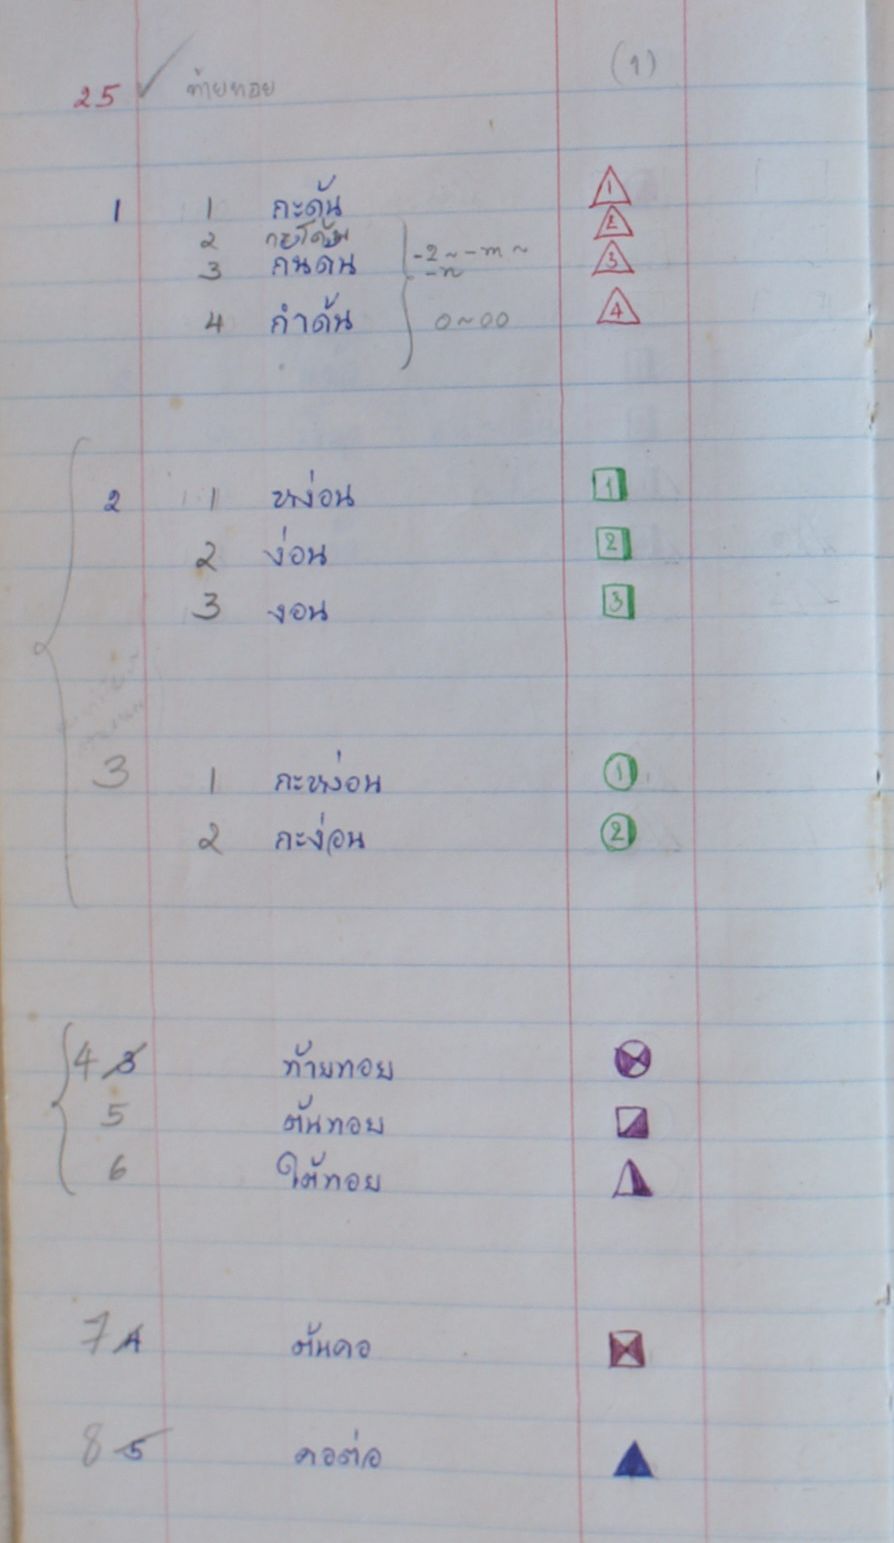 (1)
25 ✓ ท้ายทอย
1 1 กะด้น 1
2 2
3 กนดน -2~ -m~ 3
-n
4 กำด้น 0~00 4
2 1 หง่อน 1
2 ง่อน 2
3 งอน 3
3 1 กะหง่อน 1
2 กะง่อน 2
4 3 ท้ายทอย
5 ต้นทอย
6 ใต้ทอย
7 4 ต้นคอ
8 5 คอต่อ